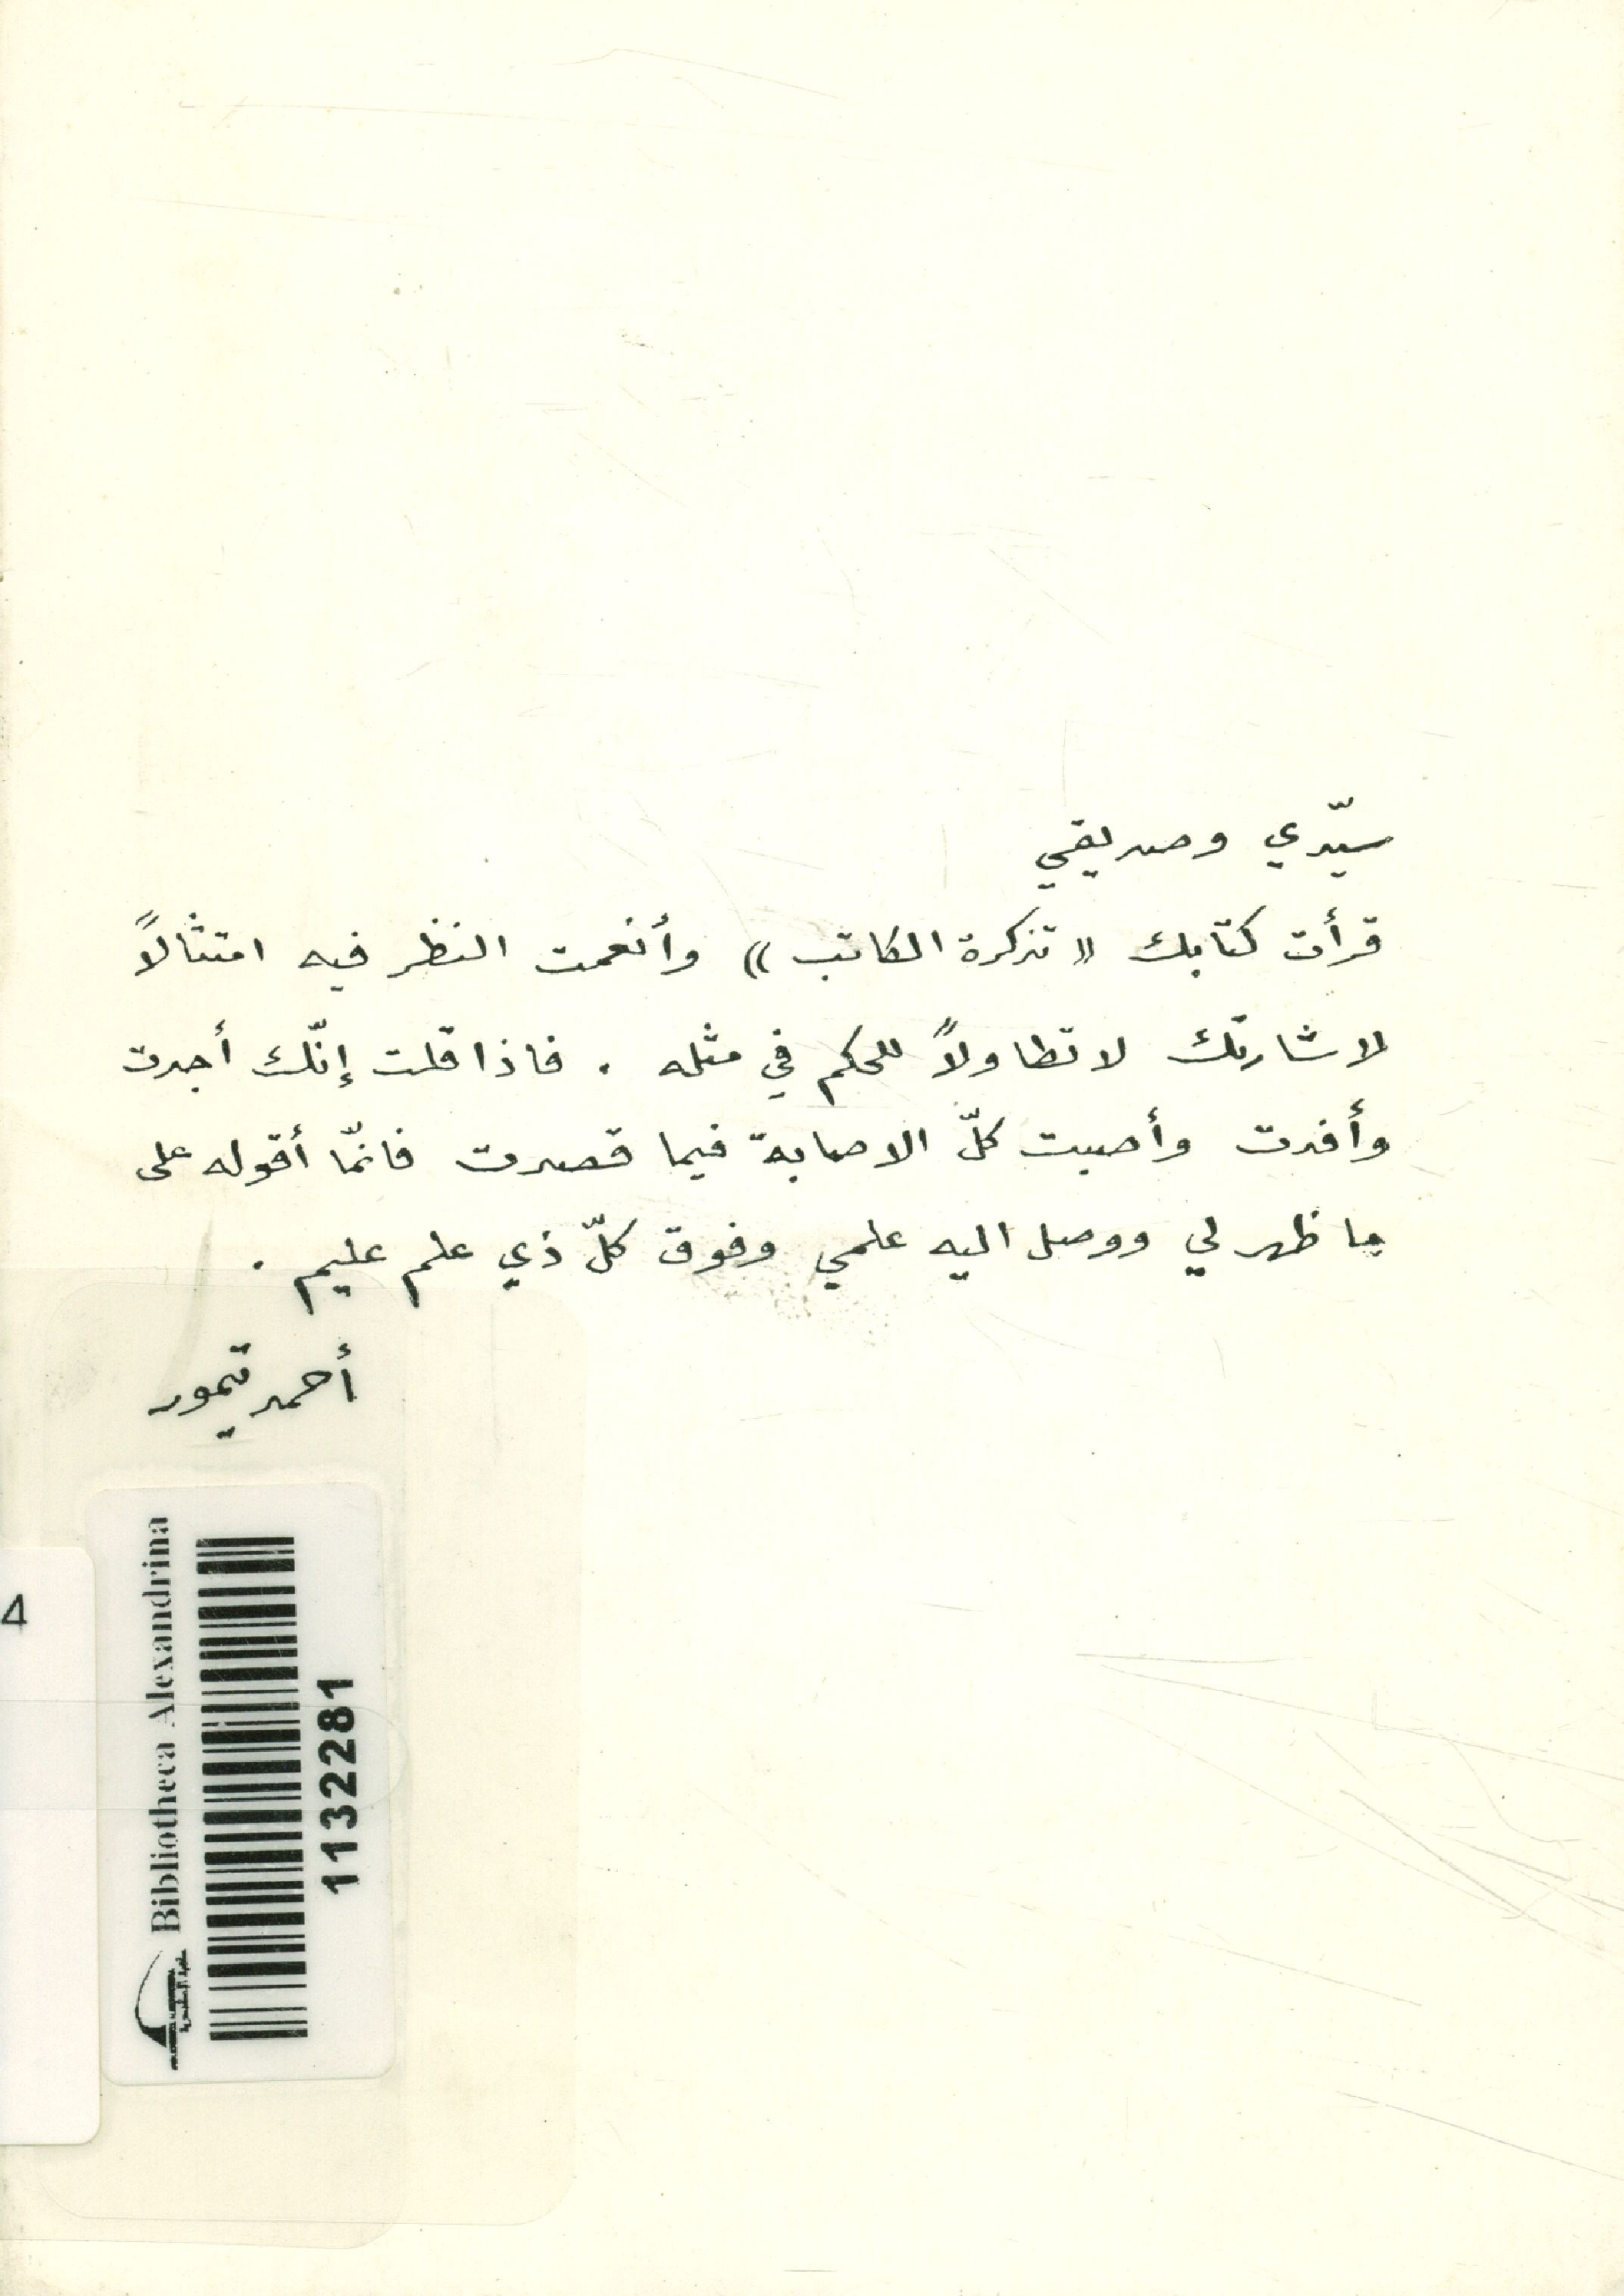 سيّدي وصديقي
قرأت كتابك «تذكرة الكاتب» وأنعمت النظر فيه امتثالاً
لاشارتك لا تطاولاً للحكم في مثله . فاذا قلت إنّك أجدت
وأفدت وأصبت كلّ الاصابة فيما قصدت فانمّا أقوله على
ما ظهر لي ووصل اليه علمي وفوق كلّ ذي علم عليم .
أحمد تيمور
Bibliotheca Alexandrina
1132281
4